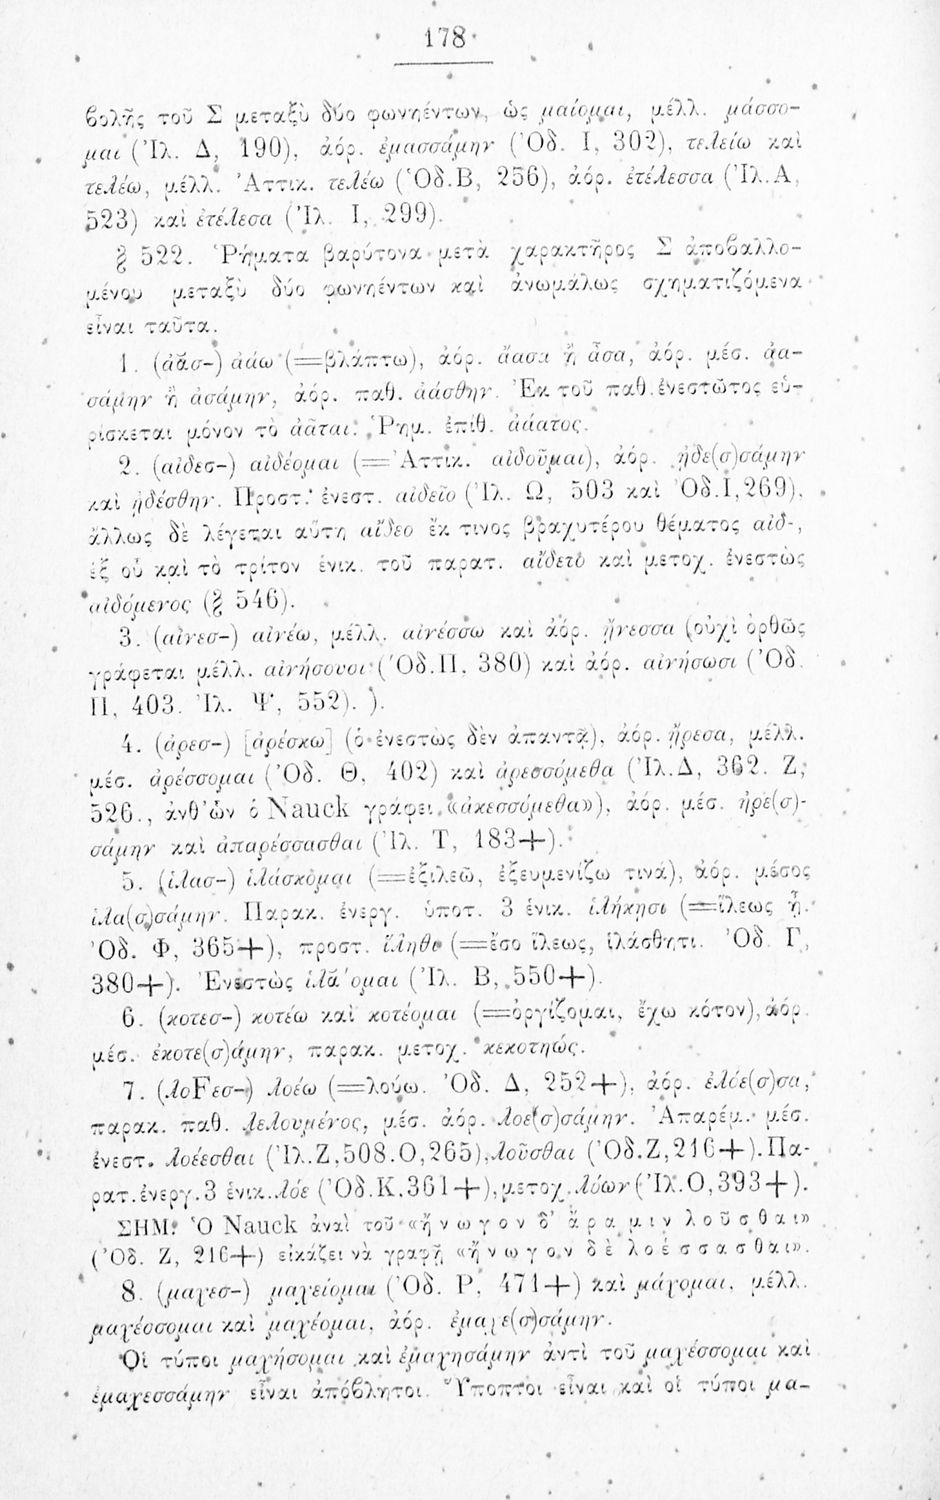 178
βολῆς τοῦ Σ μεταξὺ δύο φωνηέντων, ὡς μαίομαι, μέλλ. μάσσο-
μαι (Ἰλ. Δ, 190), ἀόρ. ἐμασσάμην (Ὀδ. Ι, 302), τελείω καὶ
τελέω, μέλλ. Ἀττικ. τελέω (Ὀδ.Β, 256), ἀόρ. ἐτέλεσσα (Ἰλ.Α,
523) καὶ ἐτέλεσα (Ἰλ. Ι, 299).
§ 522. Ῥήματα βαρύτονα μετὰ χαρακτῆρος Σ ἀποβαλλο-
μένου μεταξὺ δύο φωνηέντων καὶ ἀνωμάλως σχηματιζόμενα
εἶναι ταῦτα.
1. (ἀᾰσ-) ἀάω (=βλάπτω), ἀόρ. ἄασα ἢ ἆσα, ἀόρ. μέσ. ἀα-
σάμην ἢ ἀσάμην, ἀόρ. παθ. ἀάσθην. Ἐκ τοῦ παθ. ἐνεστῶτος εὑ-
ρίσκεται μόνον τὸ ἀᾶται. Ῥημ. ἐπίθ. ἀάατος.
2. (αἰδεσ-) αἰδέομαι (=Ἀττικ. αἰδοῦμαι), ἀόρ. ᾐδε(σ)σάμην
καὶ ᾐδέσθην. Προστ. ἐνεστ. αἰδεῖο (Ἰλ. Ω, 503 καὶ Ὀδ.Ι,269),
ἄλλως δὲ λέγεται αὕτη αἴδεο ἔκ τινος βραχυτέρου θέματος αἰδ-,
ἐξ οὗ καὶ τὸ τρίτον ἑνικ. τοῦ παρατ. αἴδετο καὶ μετοχ. ἐνεστὼς
αἰδόμενος (§ 546).
3. (αἰνεσ-) αἰνέω, μέλλ. αἰνέσσω καὶ ἀόρ. ᾔνεσσα (οὐχὶ ὀρθῶς
γράφεται μέλλ. αἰνήσουσι (Ὀδ.Π, 380) καὶ ἀόρ. αἰνήσωσι (Ὀδ.
Π, 403. Ἰλ. Ψ, 552). ).
4. (ἀρεσ-) [ἀρέσκω] (ὁ ἐνεστὼς δὲν ἀπαντᾷ), ἀόρ. ἤρεσα, μέλλ.
μέσ. ἀρέσσομαι (Ὀδ. Θ, 402) καὶ ἀρεσσόμεθα (Ἰλ.Δ, 362. Ζ,
526., ἀνθ' ὧν ὁ Nauck γράφει «ἀκεσσόμεθα»), ἀόρ. μέσ. ἠρε(σ)-
σάμην καὶ ἀπαρέσσασθαι (Ἰλ. Τ, 183+).
5. (ἱλασ-) ἱλάσκομαι (=ἐξιλεῶ, ἐξευμενίζω τινά), ἀόρ. μέσος
ἱλα(σ)σάμην. Παρακ. ἐνεργ. ὑποτ. 3 ἑνικ. ἱλήκῃσι (=ἵλεως ᾖ.
Ὀδ. Φ, 365+), προστ. ἵληθι (=ἔσο ἵλεως, ἱλάσθητι. Ὀδ Γ,
380+). Ἐνεστὼς ἱλᾰ́ομαι (Ἰλ. Β, 550+).
6. (κοτεσ-) κοτέω καὶ κοτέομαι (=ὀργίζομαι, ἔχω κότον), ἀόρ
μέσ. ἐκοτε(σ)άμην, παρακ. μετοχ. κεκοτηώς.
7. (λοFεσ-) λοέω (=λούω. Ὀδ. Δ, 252+), ἀόρ. ἐλόε(σ)σα,
παρακ. παθ. λελουμένος, μέσ. ἀόρ. λοε(σ)σάμην. Ἀπαρέμ. μέσ.
ἐνεστ. λοέεσθαι (Ἰλ.Ζ,508.Ο,265), λοῦσθαι (Ὀδ.Ζ,216+). Πα-
ρατ. ἐνεργ. 3 ἑνικ. λόε (Ὀδ.Κ.361+), μετοχ. λύων (Ἰλ.Ο,393+).
ΣΗΜ. Ὁ Nauck ἀναὶ τοῦ «ἤνωγον δ' ἄρα μιν λοῦσθαι»
(Ὀδ. Ζ, 216+) εἰκάζει νὰ γραφῇ «ἤνωγον δὲ λοέσσασθαι».
8. (μαχεσ-) μαχείομαι (Ὀδ. Ρ, 471+) καὶ μάχομαι, μέλλ.
μαχέσσομαι καὶ μαχέομαι, ἀόρ. ἐμαχε(σ)σάμην.
Οἱ τύποι μαχήσομαι καὶ ἐμαχησάμην ἀντὶ τοῦ μαχέσσομαι καὶ
ἐμαχεσσάμην εἶναι ἀπόβλητοι. Ὕποπτοι εἶναι καὶ οἱ τύποι μα-